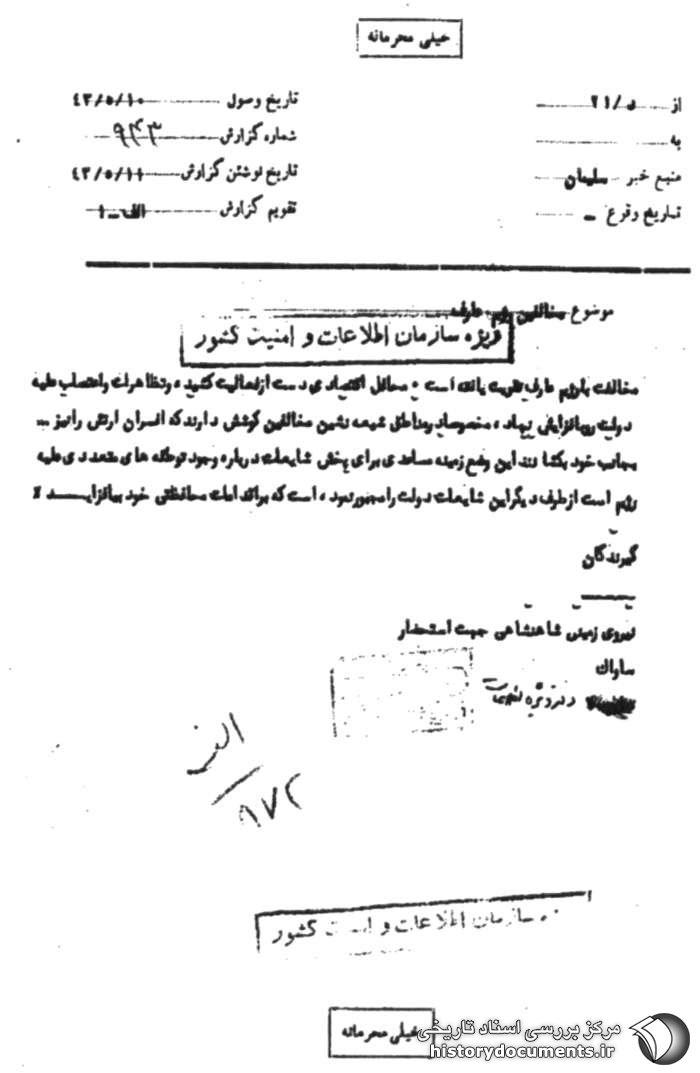 خیلی محرمانه
از د/۲۱ تاریخ وصول ۴۳/۵/۱۰
به شماره گزارش ۹۴۳
منبع خبر سلیمان تاریخ نوشتن گزارش ۴۳/۵/۱۱
تاریخ وقوع – تقویم گزارش الف-۱
موضوع مخالفین رژیم عارف
ویژه سازمان اطلاعات و امنیت کشور
مخالفت با رژیم عارف تقویت یافته است محافل اقتصادی دست از فعالیت کشید ه و تظاهرات و اعتصاب علیه
دولت روبافزایش نهاد ه مخصوصا در مناطق شیعه نشین مخالفین کوشش دارند که افسران ارتش را نیز ...
بجانب خود بکشا نند این وضع زمینه مساعدی برای پخش شایعات درباره وجود توطئه های متعددی علیه
رژیم است از طرف دیگر این شایعات دولت را مجبور نمود ه است که بر اقدامات محافظتی خود بیافزایــد ٪
گیرندگان
نیروی زمینی شاهنشاهی جهت استحضار
ساواک
دفتر ویژه
الف
۹۷۲
سازمان اطلاعات و امنیت کشور
خیلی محرمانه
مرکز بررسی اسناد تاریخی
historydocuments.ir